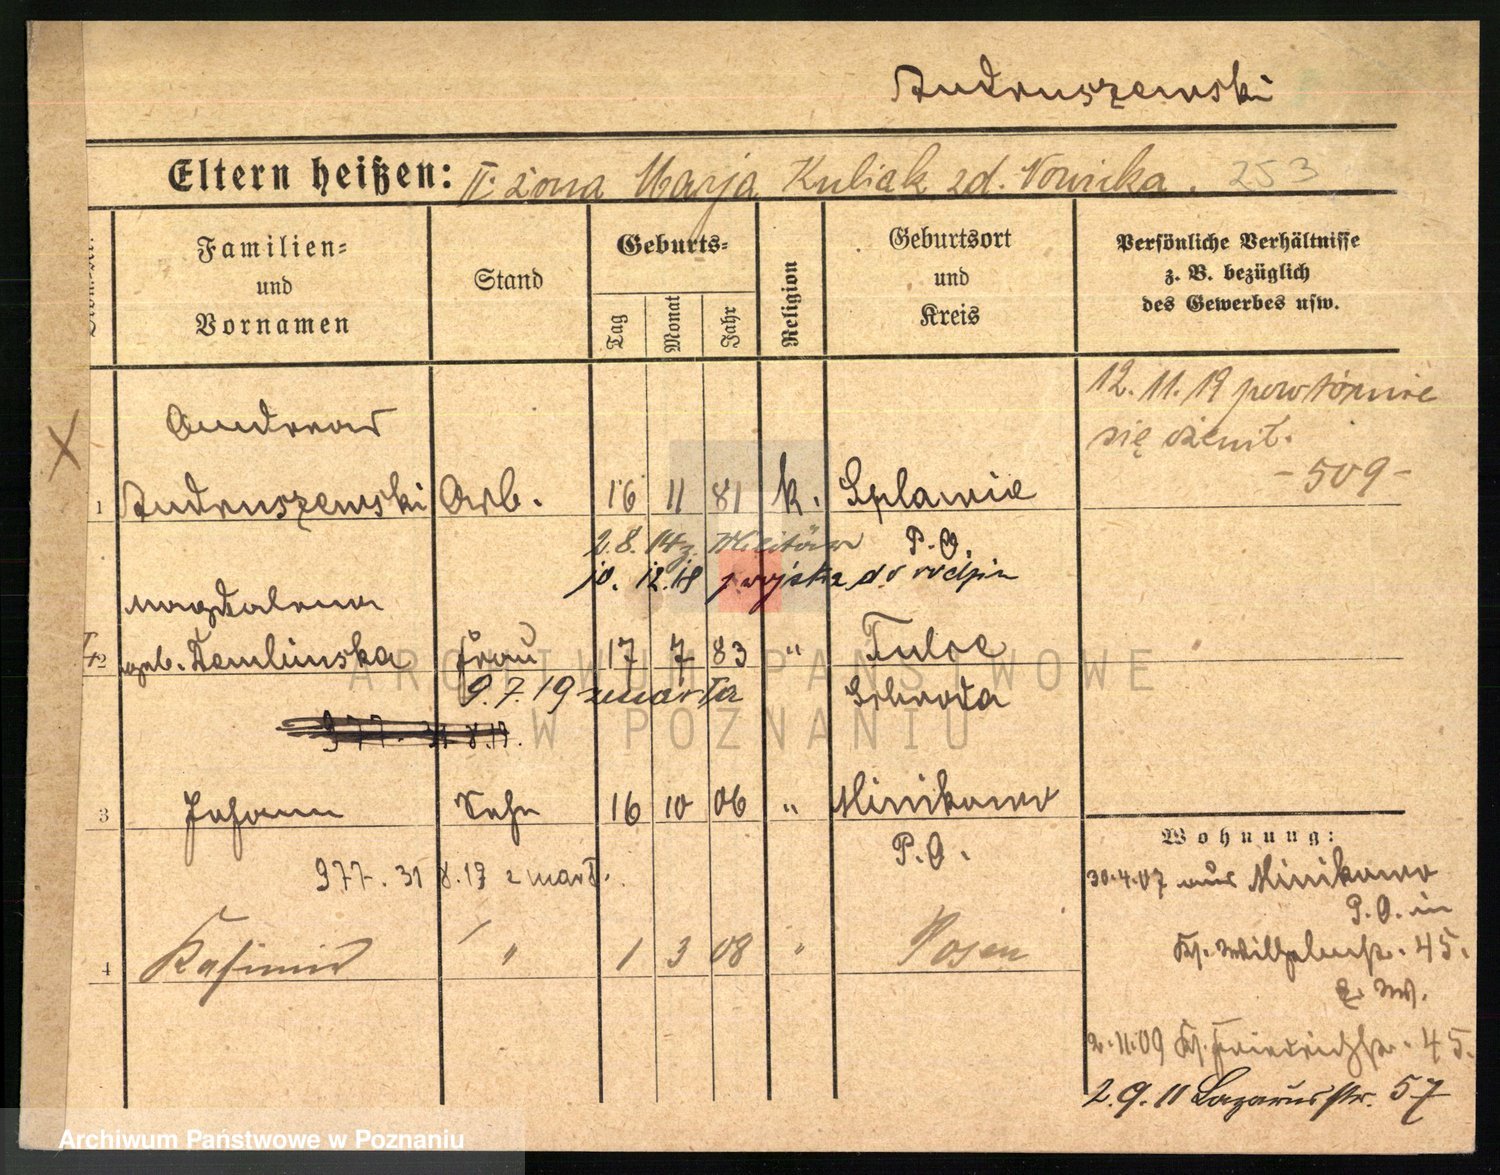 Andruszewski
Eltern heißen: II. żona Marja Kubiak zd. Nowicka. 253
Familien- und Vornamen
Stand
Geburts-
Tag
Monat
Jahr
Religion
Geburtsort und Kreis
Persönliche Verhältnisse
z. B. bezüglich
des Gewerbes usw.
12. 11. 19 powtórnie
się ożenił.
- 509 -
Andreas
1 Andruszewski Arb. 16 11 81 k. Splawie
2.8.14 z. Militär P. O.
10. 12. 18 z wojska do rodzin
Magdalena
2 geb. Demlinska Frau 17 7 83 " Tulce
9. 7. 19 zmarła Schroda
977 - 31 8.17.
3 Johann Sohn 16 10 06 " Minikowo
977. 31 8.17 zmarł. P. O.
4 Kasimir " 1 3 08 " Posen
Wohnung:
30.4.07 aus Minikowo
P. O. in
Kr. Wilhelmstr. 45.
E. W.
2.11.09 Kr. Friedrichstr. 45.
2. 9. 11 Lazarusstr. 57
ARCHIWUM PAŃSTWOWE
W POZNANIU
Archiwum Państwowe w Poznaniu